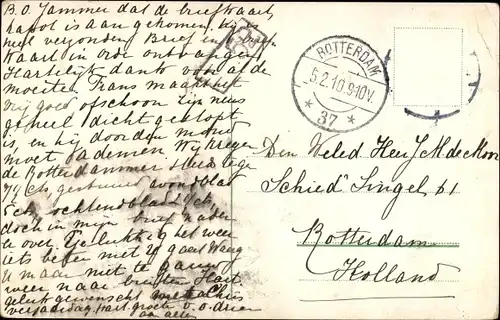 B.O. Jammer dat de briefkaart
kapot is aan gekomen, hij is
heel verzonden Brief en briefk
kaart in orde ontvangen
Hartelijk dank voor al de
moeiten Frans maakt het
vrij goed ofschoon zijn neus
geheel dicht gestopt
is, en hij door den mond
moet ademen Wij kregen
de Rotterdammer
avondblad
5ct, ochtendblad
doch in mijn brief nader
te over. Gelukkig het weer
iets beter met U gaat Waag
U maar niet te gauw
weer naar buiten Hart.
geluk gewenscht met
verjaardag, hart. groeten v. o. drieën
aan allen
ROTTERDAM
5.2.10 9-10V.
* 37 *
Den Weled. Heer J. M. de Moor
Schied' Singel 61
Rotterdam
Holland